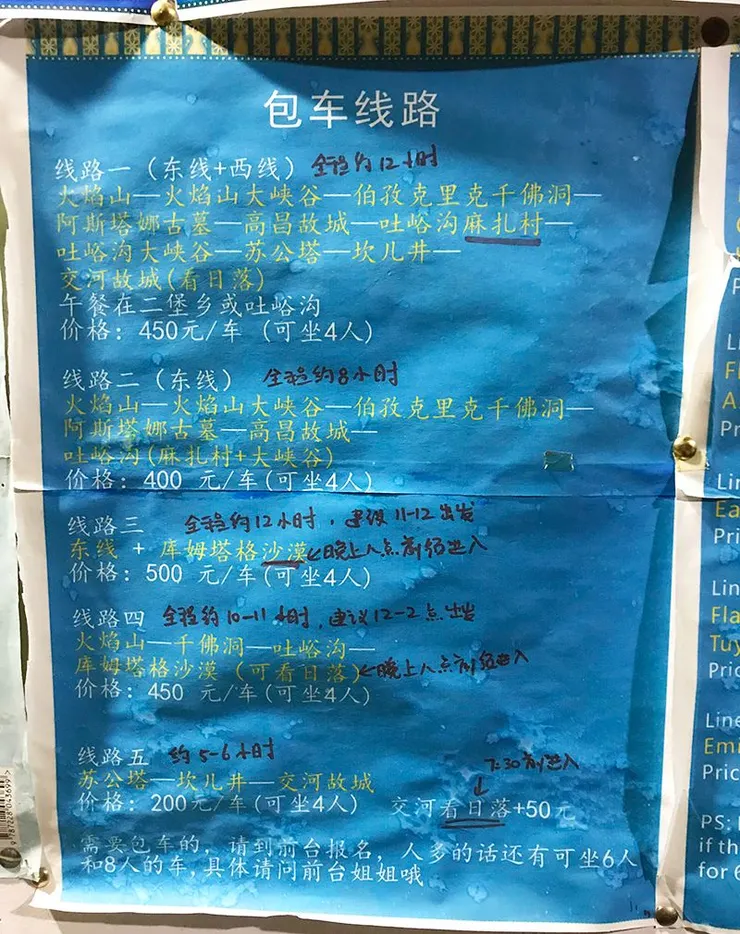 包车线路
线路一（东线+西线）全程约12小时
火焰山—火焰山大峡谷—伯孜克里克千佛洞—
阿斯塔娜古墓—高昌故城—吐峪沟麻扎村—
吐峪沟大峡谷—苏公塔—坎儿井—
交河故城(看日落)
午餐在二堡乡或吐峪沟
价格：450元/车 (可坐4人)
线路二（东线） 全程约8小时
火焰山—火焰山大峡谷—伯孜克里克千佛洞—
阿斯塔娜古墓—高昌故城—
吐峪沟(麻扎村+大峡谷)
价格：400 元/车(可坐4人)
线路三 全程约12小时，建议11-12出发
东线 + 库姆塔格沙漠←晚上八点前须进入
价格：500 元/车(可坐4人)
线路四 全程约10-11小时，建议12-2点出发
火焰山—千佛洞—吐峪沟—
库姆塔格沙漠 (可看日落)←晚上八点前须进入
价格：450 元/车(可坐4人)
线路五 约5-6小时
7:30前进入
苏公塔—坎儿井—交河故城
价格：200元/车(可坐4人) 交河看日落+50元
需要包车的，请到前台报名，人多的话还有可坐6人
和8人的车,具体请问前台姐姐哦
Pric
Lin
Ea
Pric
Lin
Fla
Tuy
Pric
Line
Emi
Pric
PS:
if th
for 6